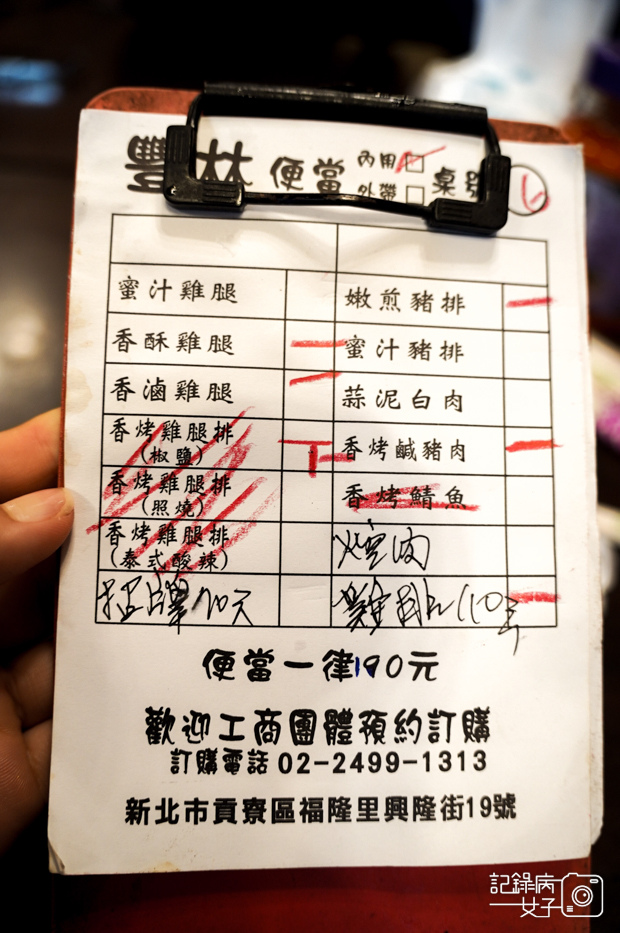 豐林 便當 內用 桌號
外帶
蜜汁雞腿 嫩煎豬排
香酥雞腿 蜜汁豬排
香滷雞腿 蒜泥白肉
香烤雞腿排 香烤鹹豬肉
(椒鹽)
香烤雞腿排 香烤鯖魚
(照燒)
香烤雞腿排
(泰式酸辣)
招牌 70元 雞腿 110元
便當一律90元
歡迎工商團體預約訂購
訂購電話 02-2499-1313
新北市貢寮區福隆里興隆街19號
記錄病
女子